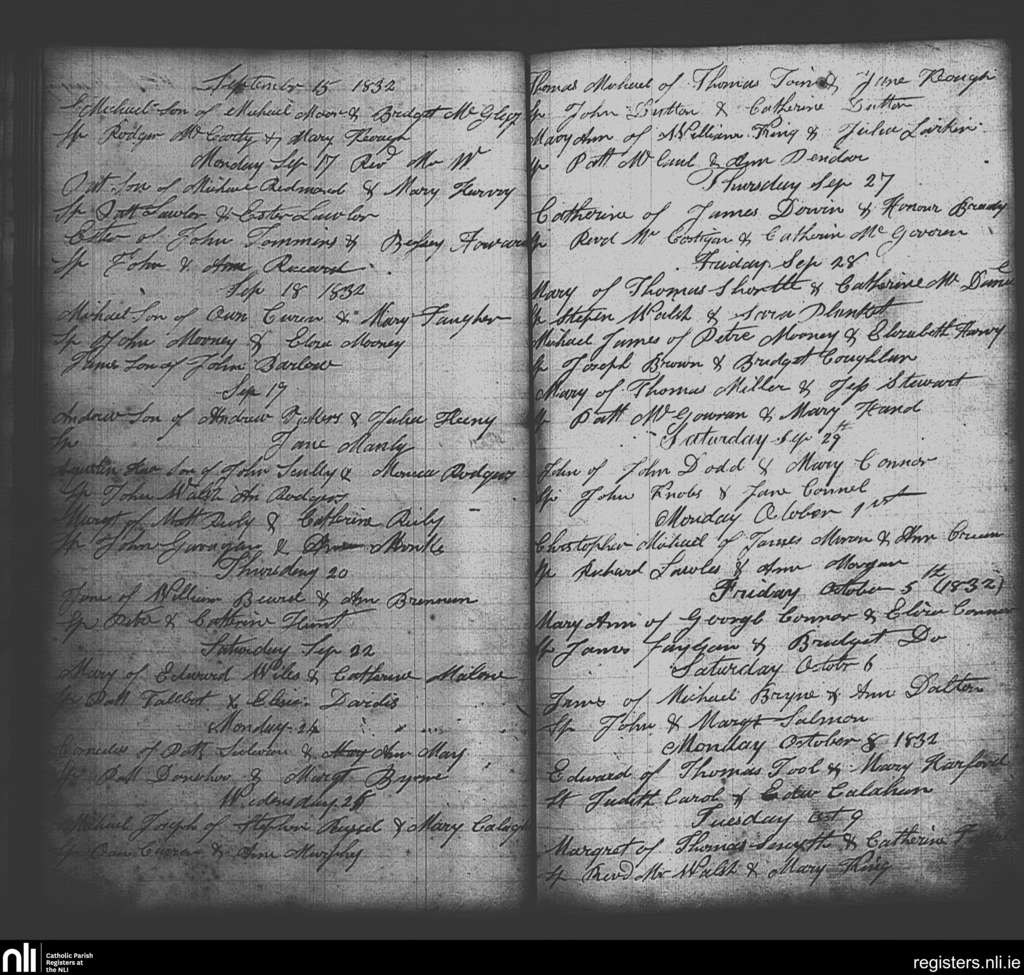 September 15 1832
Michael Son of Michael Moor & Bridget Mc
Sp Rodger Mc Carty & Mary Keough
Monday Sep 17 Revd Mr W
Patt Son of Michael Redmond & Mary Harvey
Sp Patt Lawlor & Ester Lawlor
Ester of John Tommins & Betsey
Sp John & Ann Ricard
Sep 18 1832
Michael Son of Own Curen & Mary
Sp John Mooney & Elora Mooney
James Son of John Barlow
Sep 19
Andrew Son of Andrew & Julia Heeny
Sp Jane Manly
Son of John Scully & Monica Rodgers
Sp John Walsh An Rodgers
Margt of Matt Riely & Catherine Riely
Sp John Garragan & Ann Monks
Thursday 20
Jane of William Beard & Ann Brennan
Sp Peter & Catherine Hunt
Saturday Sep 22
Mary of Edward Wiles & Catherine Malone
Sp Patt Tallbot & Elisa Dardis
Monday 24
Cornelius of Patt & May Ann Mary
Sp Patt Donohow & Margt Byrne
Wedensday 26
Michael Joseph of Stephen Russel & Mary
Sp Own Curren & Ann Murphy
Thomas Michael of Thomas & Jane Keough
Sp John Dutton & Catherine Dutton
Mary Ann of William King & Julia Larkin
Sp Patt Mc & Ann
Thursday Sep 27
Catherine of James Dowin & Honour Brady
Sp Revd Mr Costigan & Catherin Mc Govoren
Friday Sep 28
Mary of Thomas Shortte & Catherine Mc
Sp Stephen Walsh & Sora Plunket
Michael James of Petre Mooney & Elezabeth Harvy
Sp Joseph Brown & Bridget Coughlan
Mary of Thomas Miller & Jess Stewart
Sp Patt Mc Gowran & Mary Hand
Saturday Sep 29th
John of John Dodd & Mary Connor
Sp John Knobs & Jane Connel
Monday October 1st
Christopher Michael of James Moran & Ann
Sp Richard Lawles & Ann Morgan
Friday October 5th (1832)
Mary Ann of George Connor & Eliza Connor
Sp James Faygan & Bridget Do
Saturday Octobr 6
James of Michael Bryne & Ann Dalton
Sp John & Margt Salmon
Monday October 8 1832
Edward of Thomas Tool & Mary Harford
Sp Judith Carol & Edw Calahan
Tuesday Oct 9
Margret of Thomas Smyth & Catherine
Sp Revd Mr Walsh & Mary King
nli Catholic Parish
Registers at
the NLI
registers.nli.ie